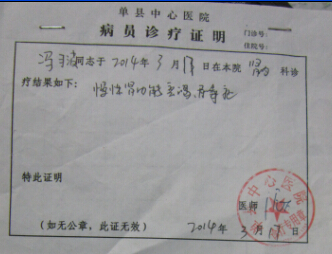 单县中心医院
病员诊疗证明
门诊号:
住院号:
同志于2014年3月1 日在本院 科诊
疗结果如下: 慢性肾功能衰竭、尿毒症
特此证明
医师
(如无公章,此证无效) 2014年3月1 日